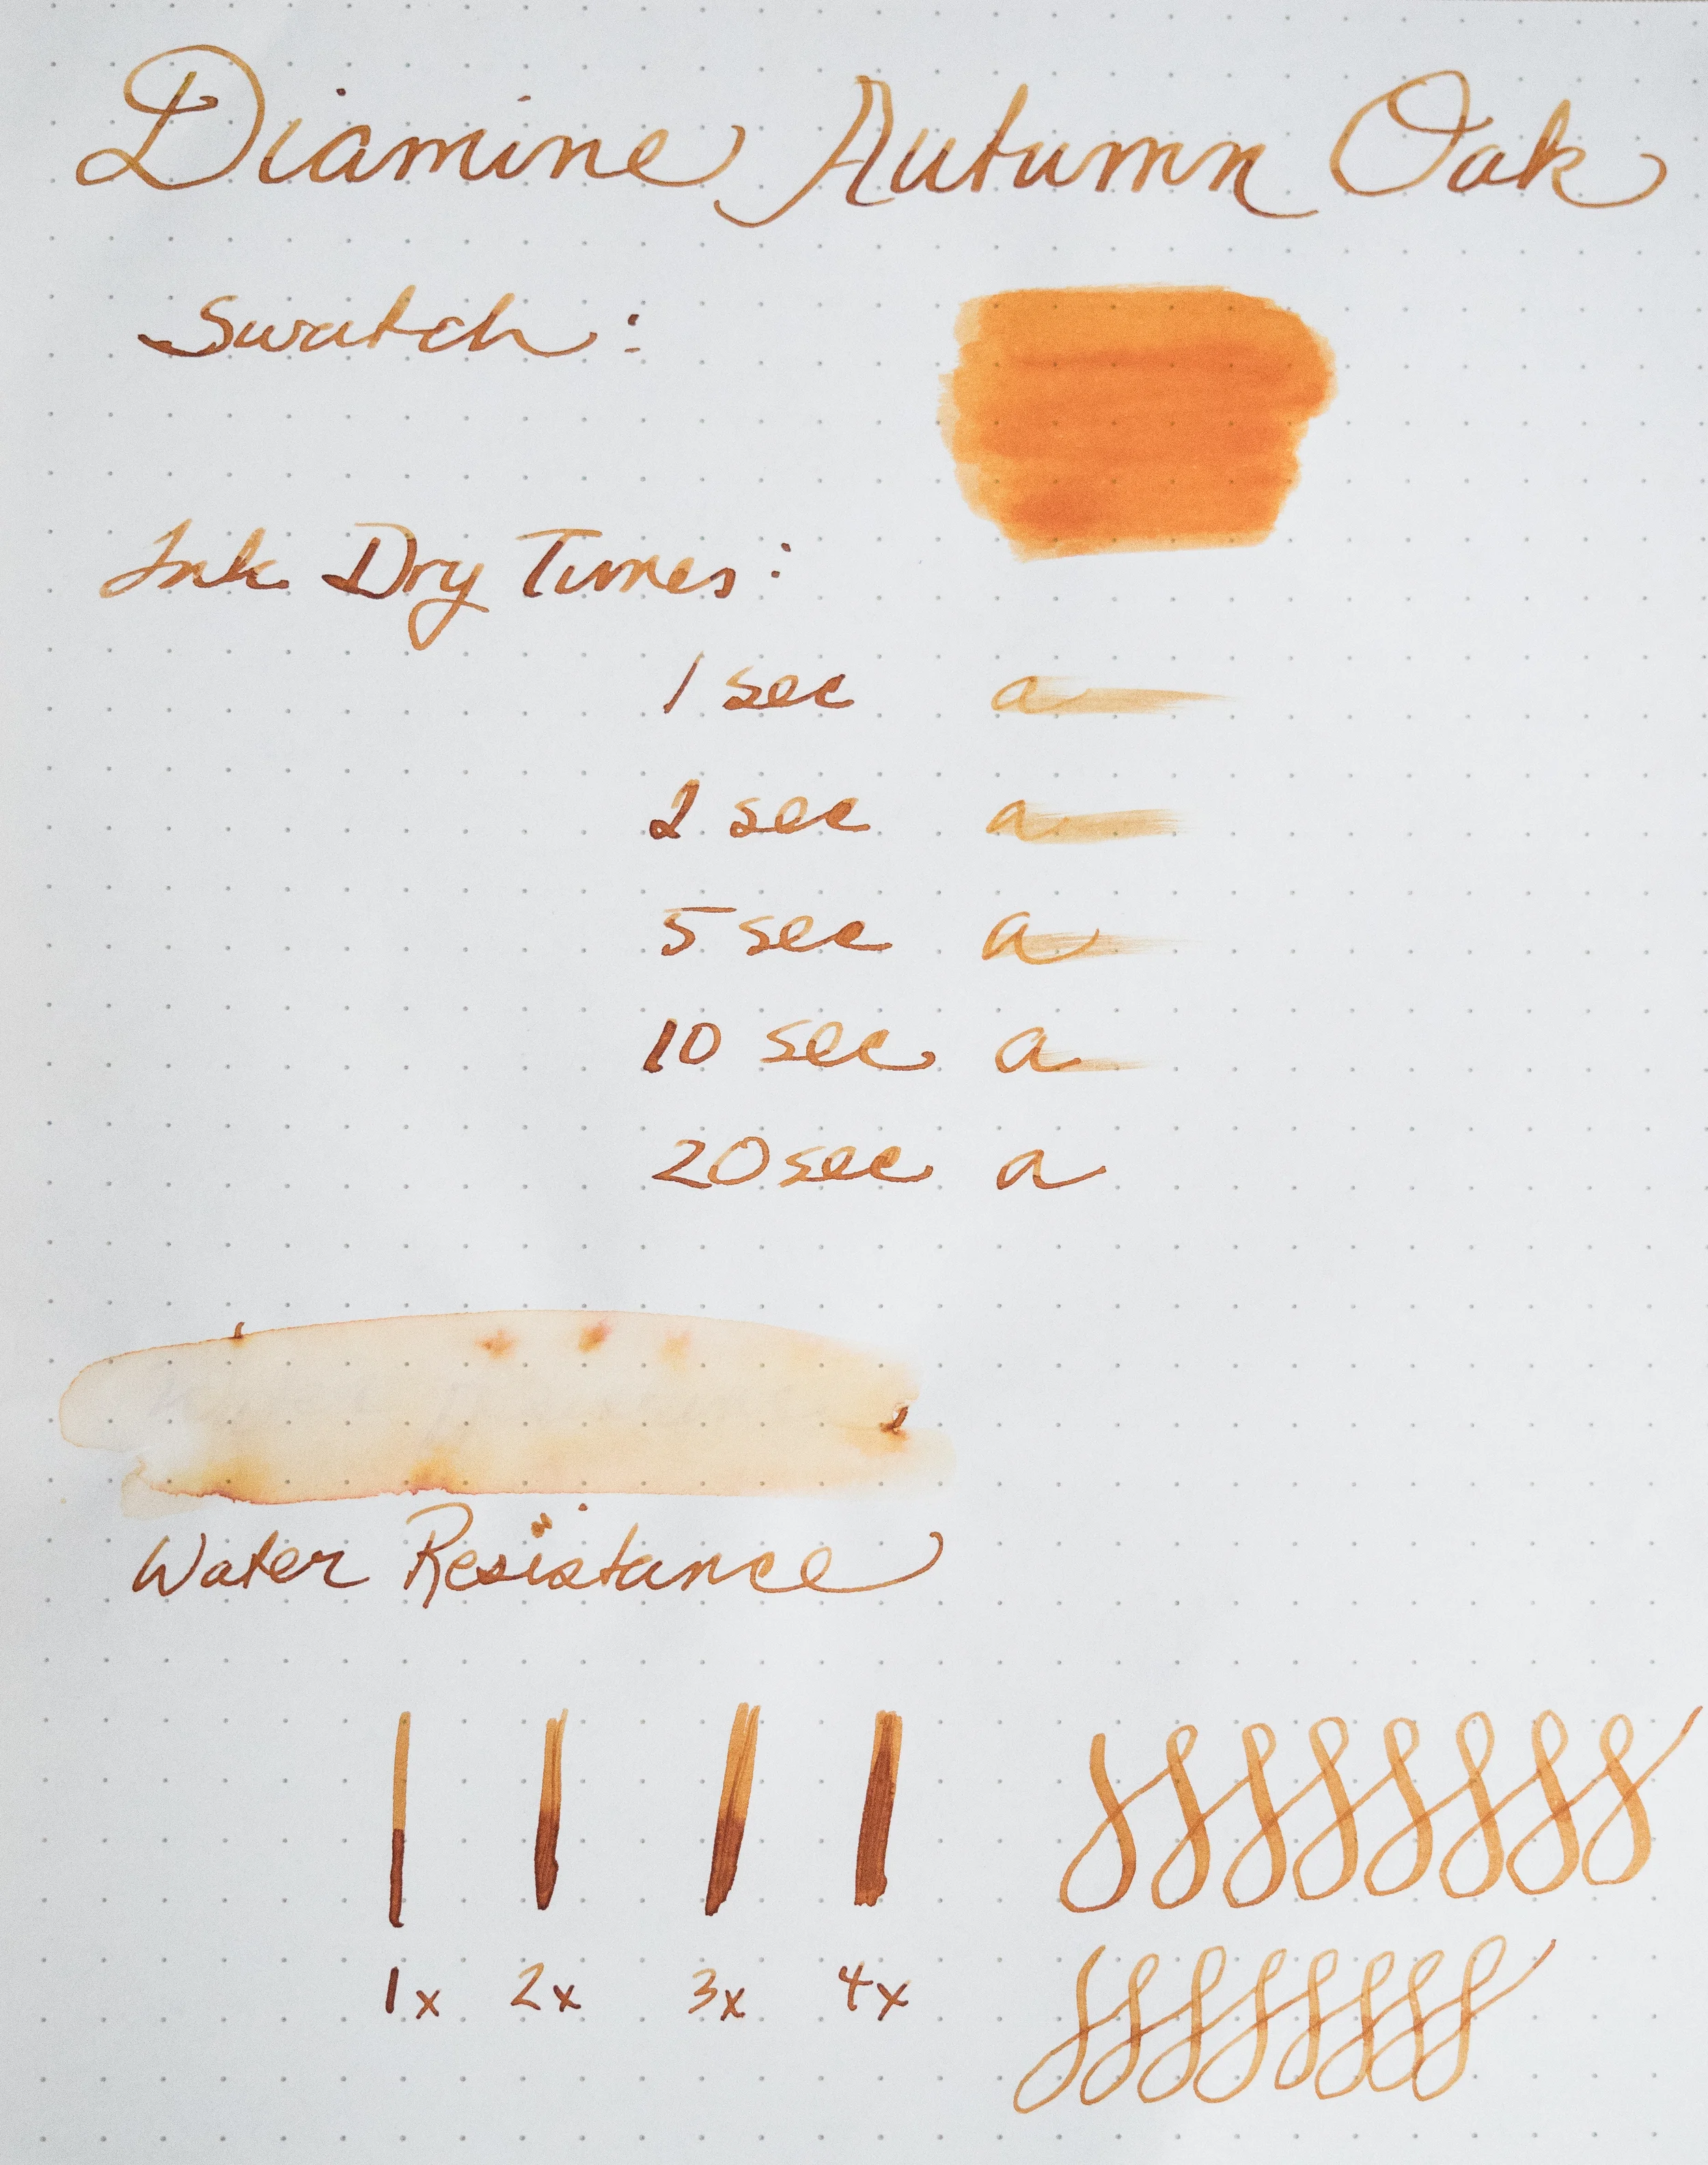 Diamine Autumn Oak
Swatch:
Ink Dry Times:
1 sec a
2 sec a
5 sec a
10 sec a
20 sec a
Water Resistance
1x 2x 3x 4x